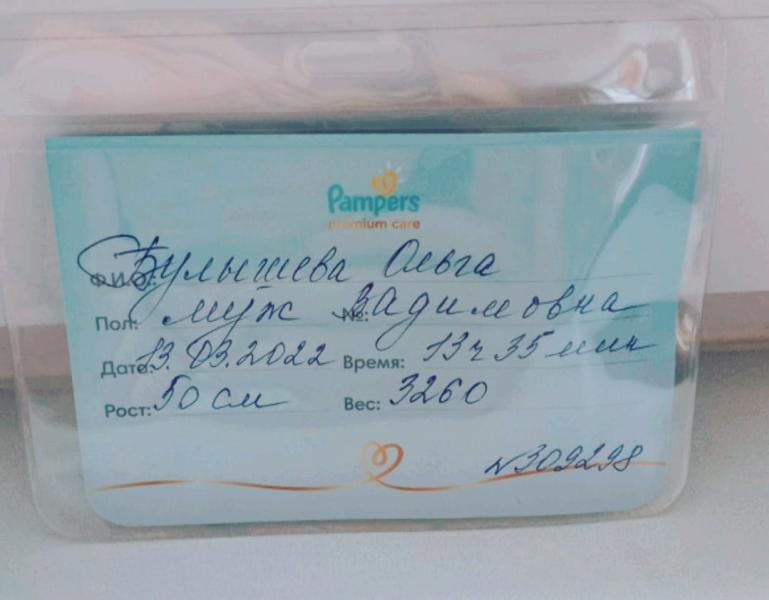 Pampers
premium care
Ф.И.О.: Булышева Ольга
Пол: муж №: Вадимовна
Дата: 13.03.2022 Время: 13ч 35 мин
Рост: 50 см Вес: 3260
№309298